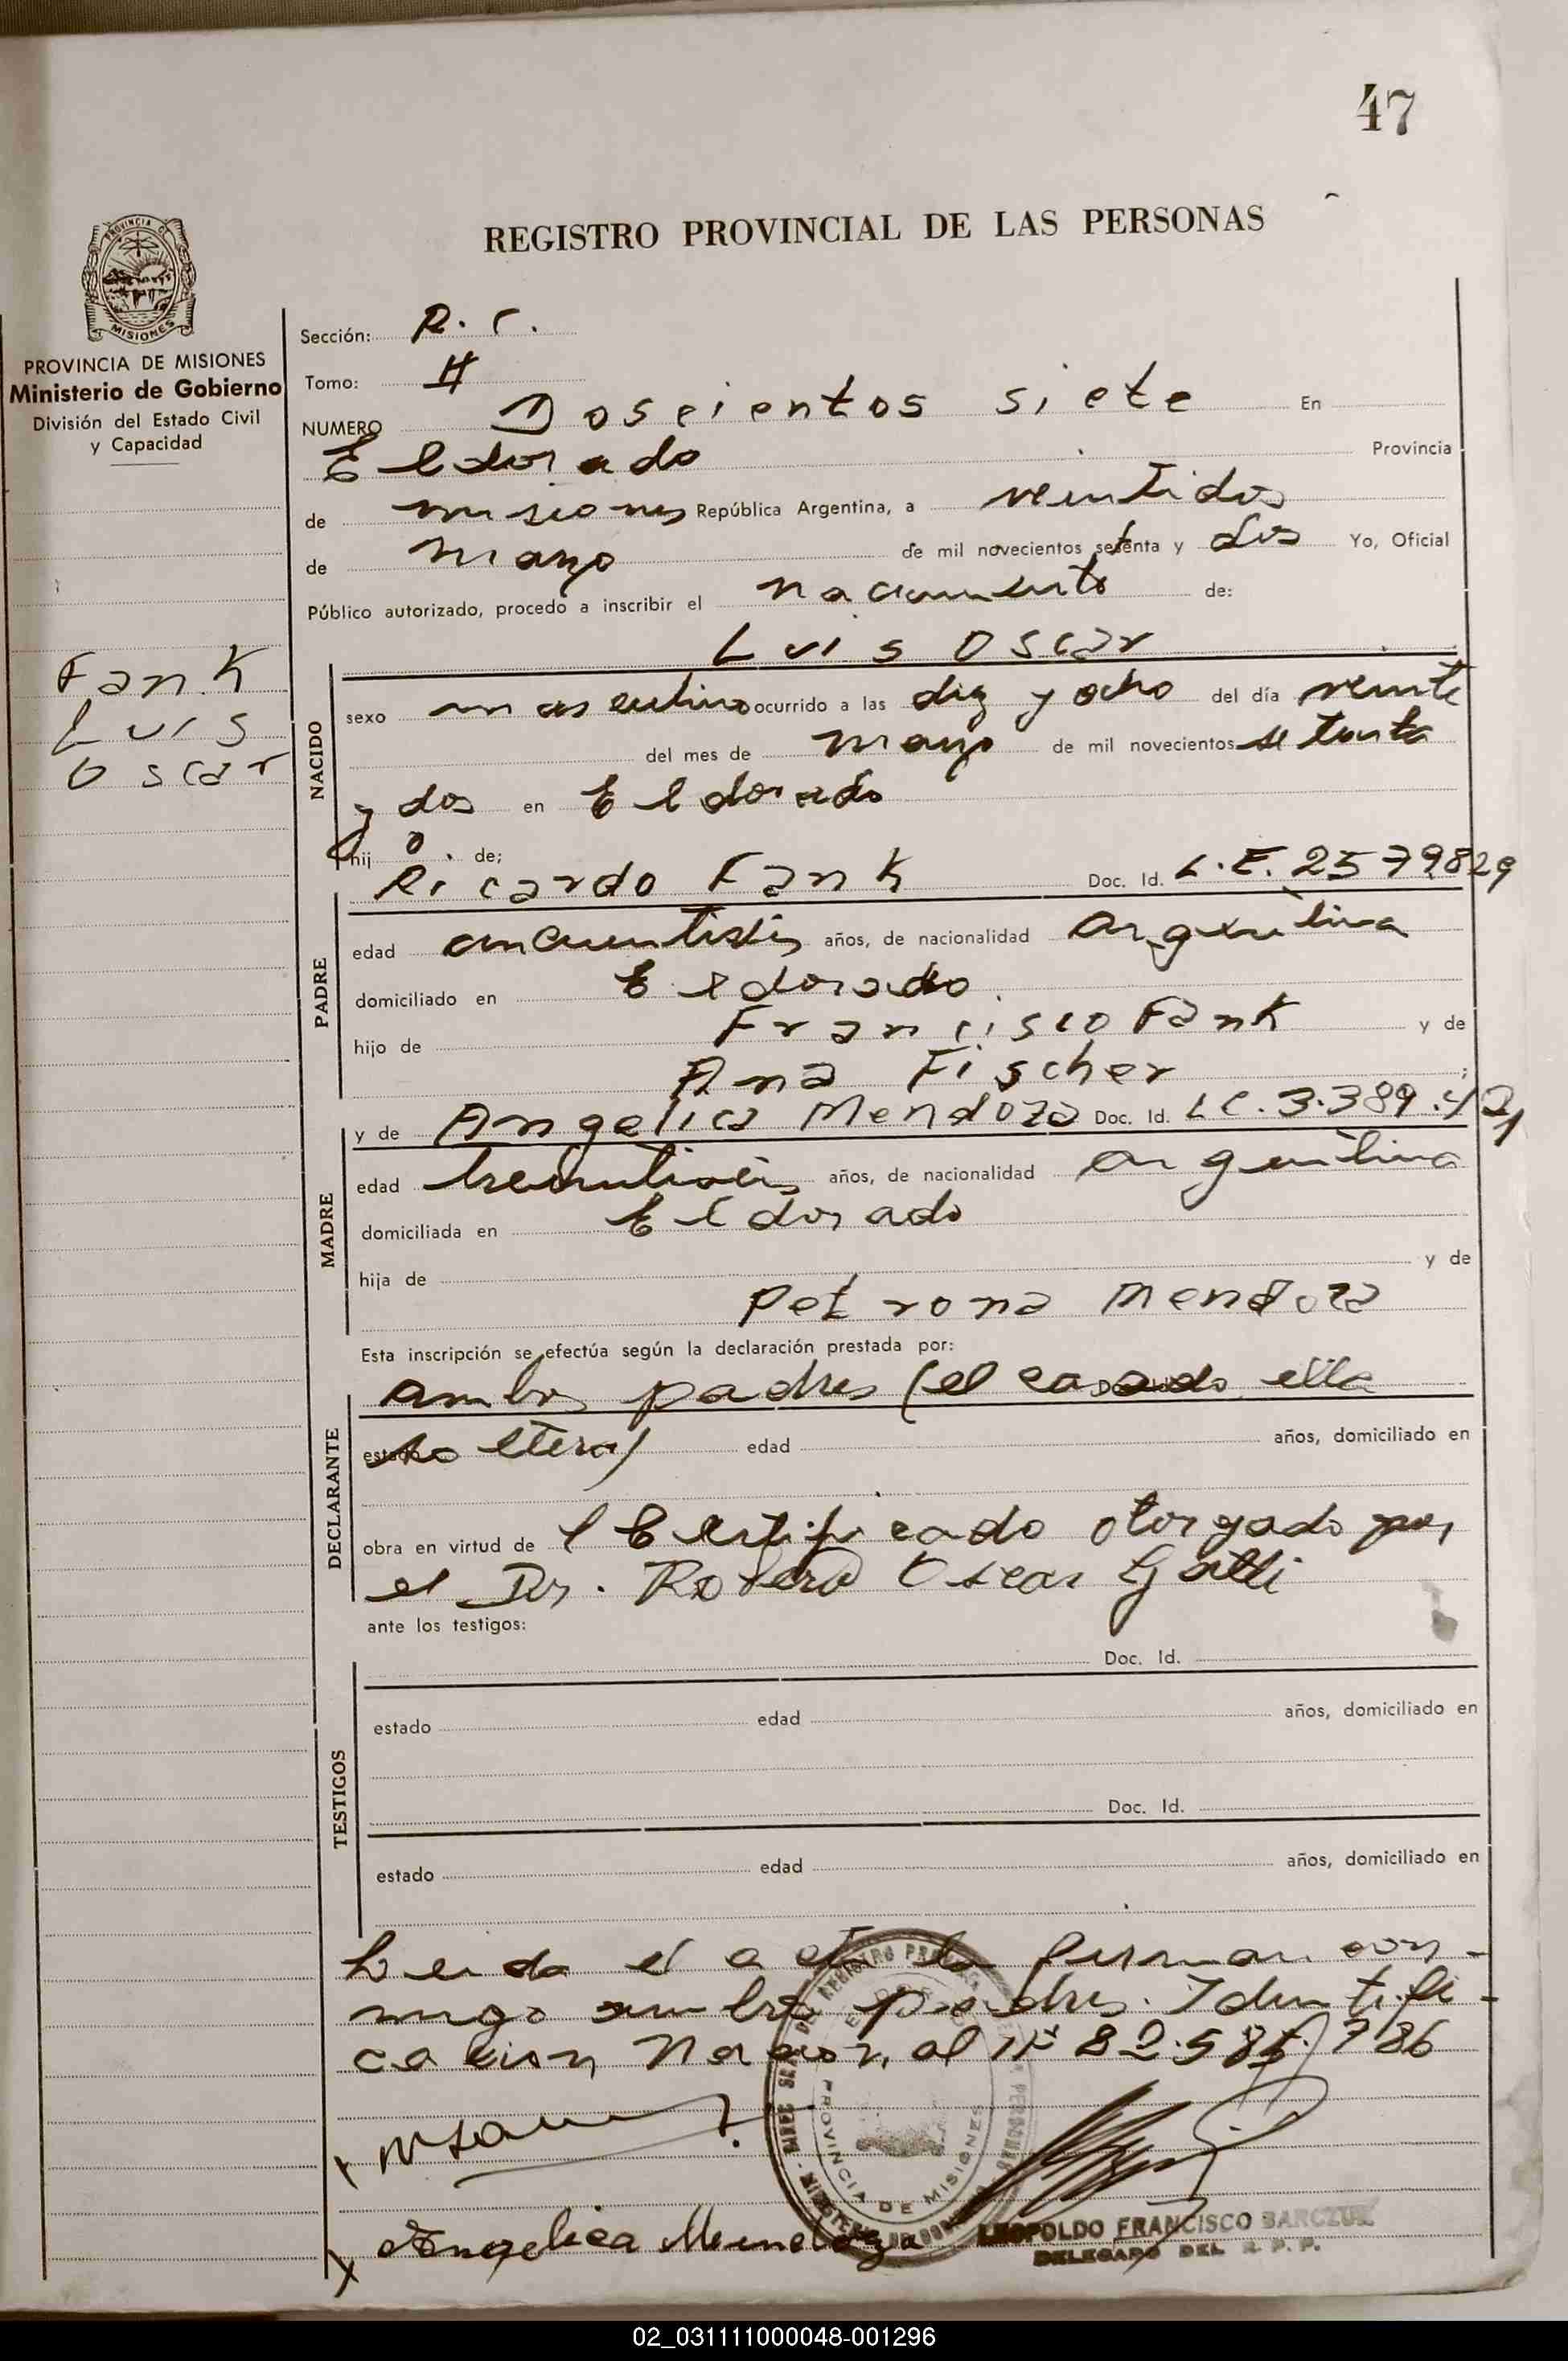 47
REGISTRO PROVINCIAL DE LAS PERSONAS
PROVINCIA DE MISIONES
Ministerio de Gobierno
División del Estado Civil
y Capacidad
Fank
Luis
Oscar
Sección: R. C.
Tomo: II
NUMERO Doscientos siete En
Eldorado Provincia
de misiones República Argentina, a veintidos
de mayo de mil novecientos setenta y dos Yo, Oficial
Público autorizado, procedo a inscribir el nacimiento de:
Luis Oscar
NACIDO
sexo masculino ocurrido a las diez y ocho del día veinte
del mes de mayo de mil novecientos setenta
y dos en Eldorado
hij o. de;
Ricardo Fank Doc. Id. L.E. 2579829
PADRE
edad años, de nacionalidad argentina
domiciliado en Eldorado.
hijo de Francisco Fank y de
Ana Fischer ;
y de Angelica Mendoza Doc. Id. LC. 3.389.421
MADRE
edad años, de nacionalidad argentina
domiciliada en Eldorado
hija de y de
Petrona Mendoza
Esta inscripción se efectúa según la declaración prestada por:
ambos padres (el casado ella
DECLARANTE
estado soltera) edad años, domiciliado en
obra en virtud de l Certificado otorgado por
el Dr. Roberto Oscar Gatti
ante los testigos:
Doc. Id.
TESTIGOS
estado edad años, domiciliado en
Doc. Id.
estado edad años, domiciliado en
Leida el acta la firman con-
migo ambos padres. Identifi-
cacion Nacional Nº 22.585.786
Angelica Mendoza
PROVINCIA DE MISIONES
LEOPOLDO FRANCISCO BARCZUK
DELEGADO DEL R. P. P.
02_031111000048-001296